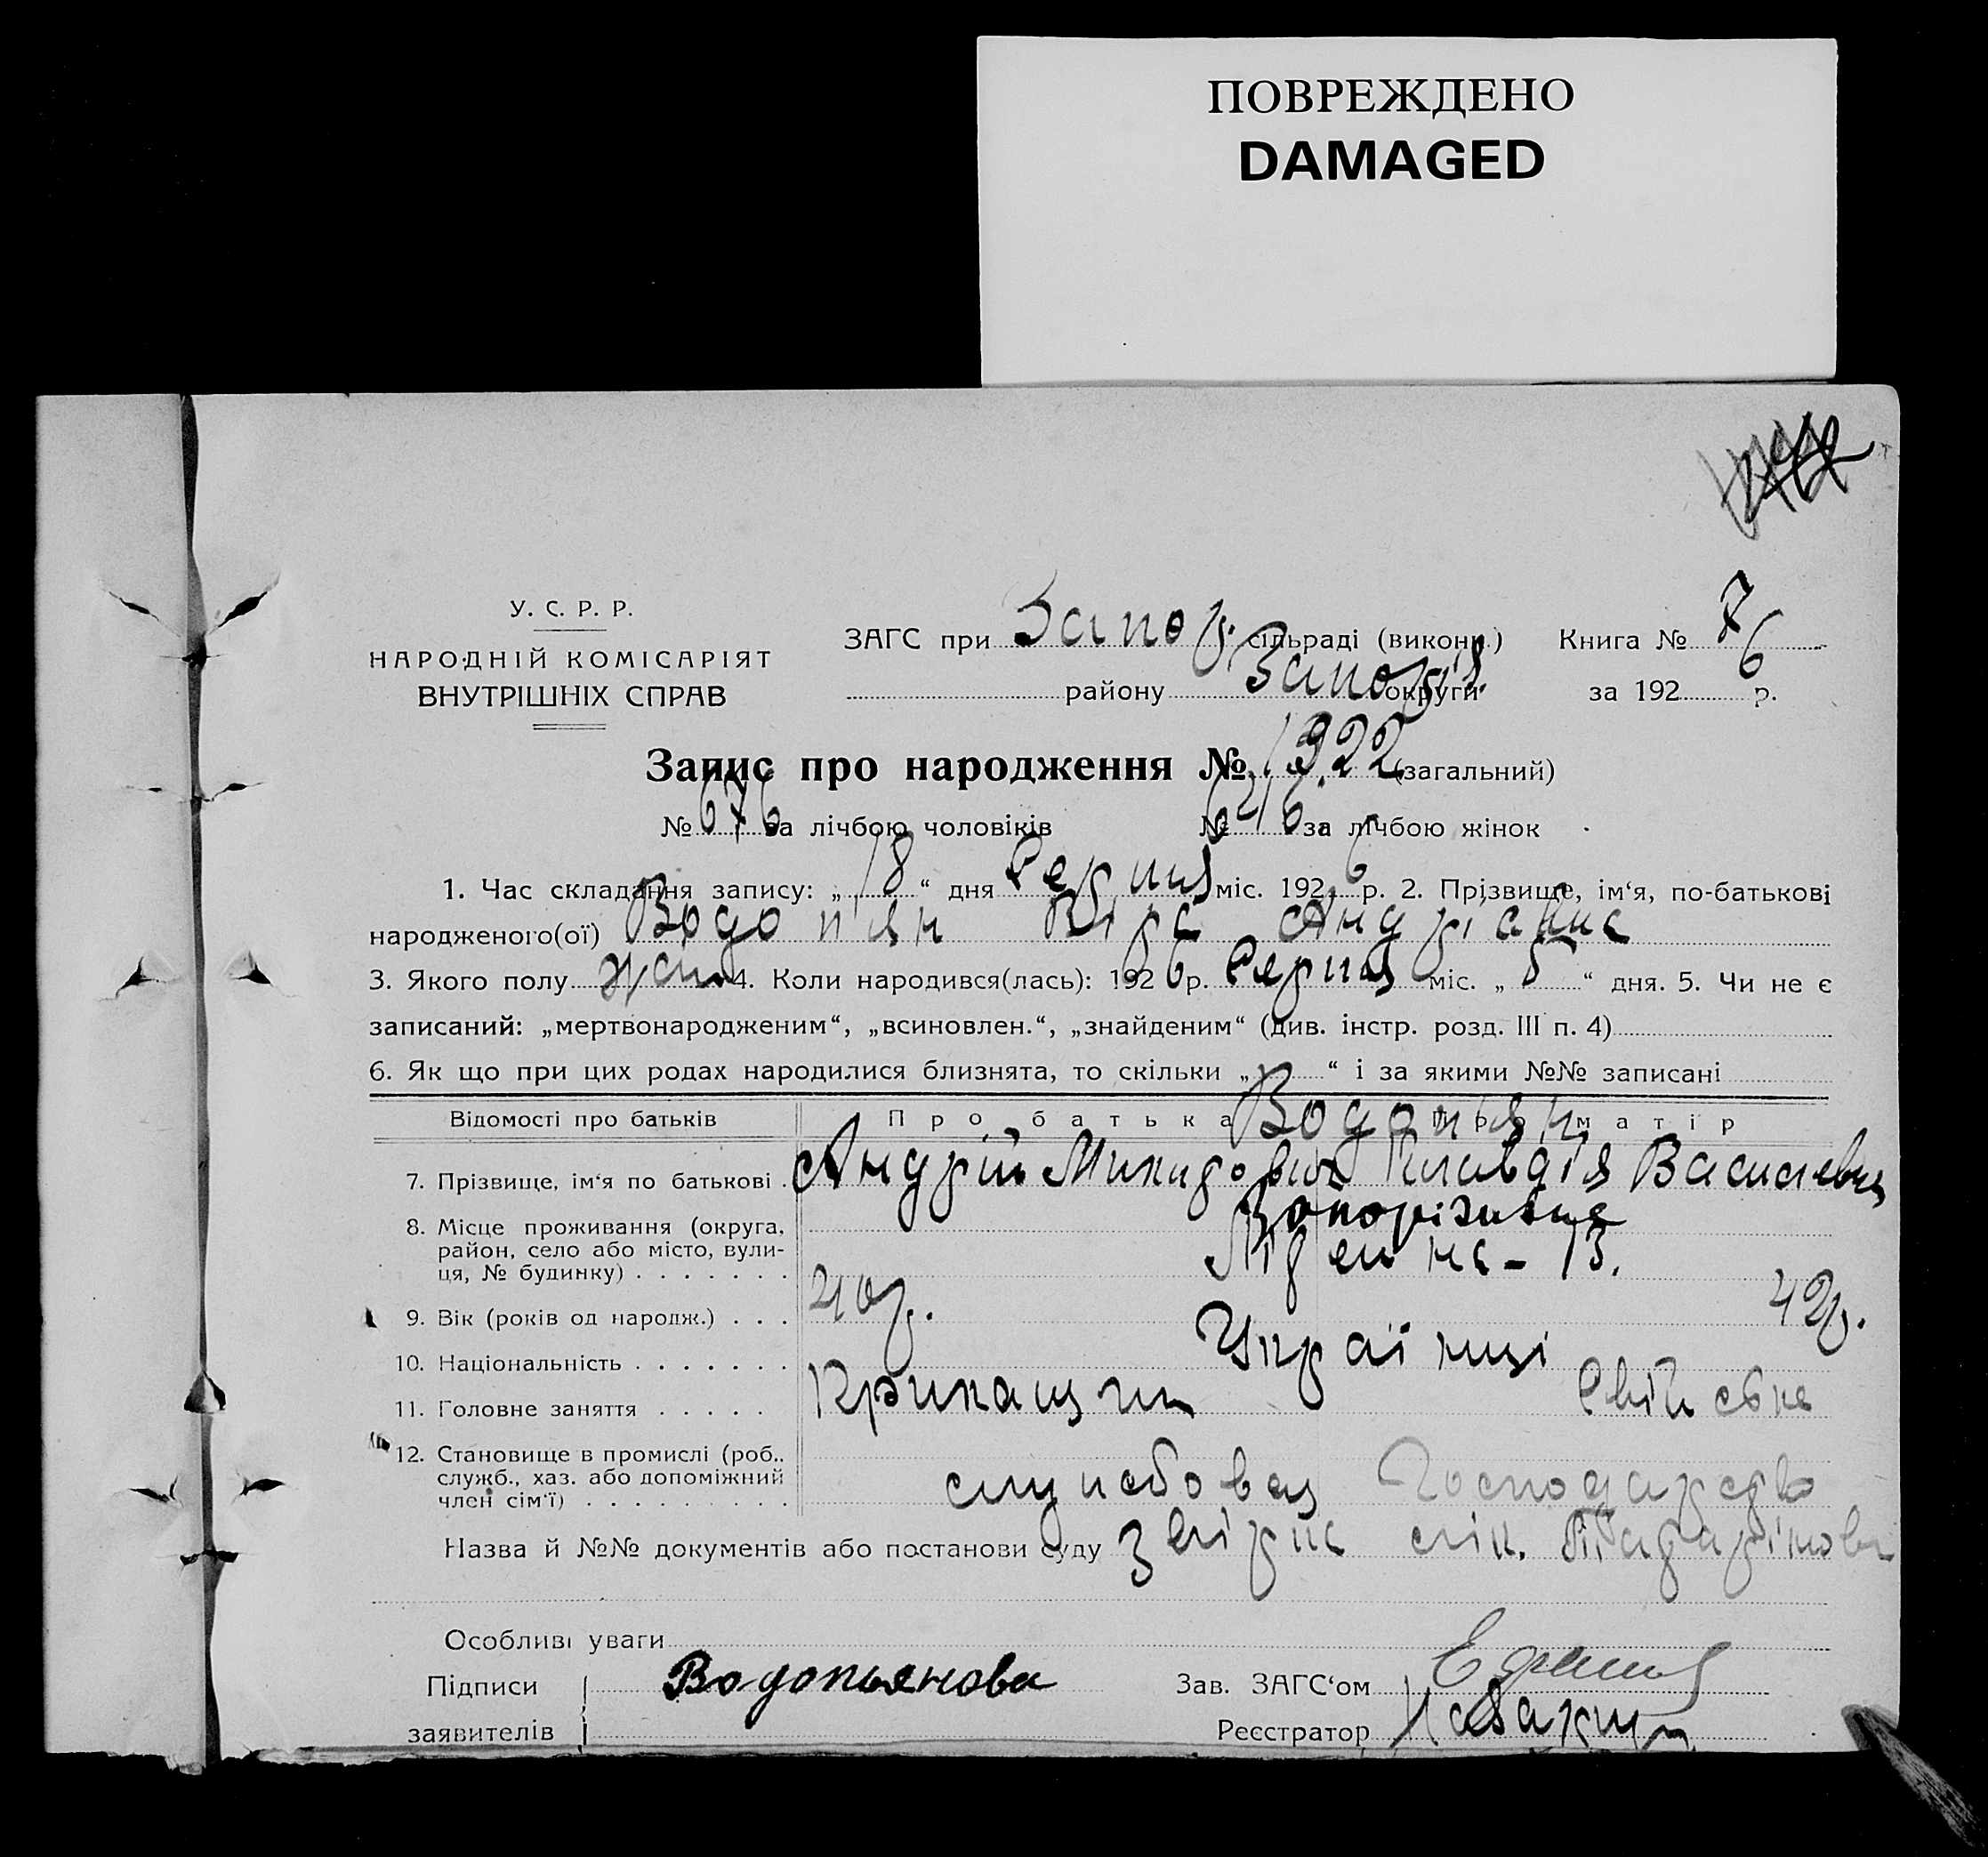 ПОВРЕЖДЕНО
DAMAGED
У. С. Р. Р.
НАРОДНІЙ КОМІСАРІЯТ
ВНУТРІШНІХ СПРАВ
ЗАГС при Запор. сільраді (викони.) Книга № 7
району Запоріз. округи за 1926 р.
Запис про народження № 1322 (загальний)
№ 676 за лічбою чоловіків № 646 за лічбою жінок
1. Час складання запису: „18“ дня Серпня міс. 1926 р. 2. Прізвище, ім‘я, по-батькові
народженого(ої) Водоп'ян Віра Андріївна
3. Якого полу жін. 4. Коли народився(лась): 1926 р. Серпня міс. „5“ дня. 5. Чи не є
записаний: „мертвонародженим“, „всиновлен.“, „знайденим“ (див. інстр. розд. III п. 4)
6. Як що при цих родах народилися близнята, то скільки „ “ і за якими №№ записані
Відомості про батьків Про батька Водоп'ян Про матір
7. Прізвище, ім‘я по батькові Андрій Микидович Клавдія Василевна
8. Місце проживання (округа, район, село або місто, вули-ця, № будинку) Запоріжжя
13.
9. Вік (років од народж.) 40 р. 42 р.
10. Національність Українці
11. Головне заняття Крикащик Свійська
12. Становище в промислі (роб., служб., хаз. або допоміжний член сім‘ї) службовец Господарство
Назва й №№ документів або постанови суду звірка лік.
Особливі уваги
Підписи заявителів Водопьянова
Зав. ЗАГС‘ом
Реєстратор